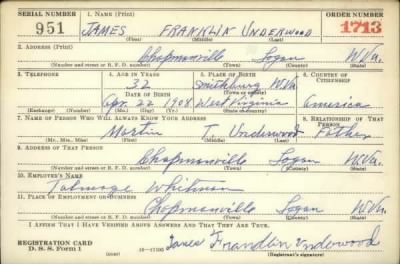 SERIAL NUMBER 1. NAME (Print) ORDER NUMBER
951 JAMES FRANKLIN UNDERWOOD 1713
2. ADDRESS (Print)
Chapmanville Logan W.Va.
(Number and street or R. F. D. number) (Town) (County) (State)
3. TELEPHONE 4. AGE IN YEARS 5. PLACE OF BIRTH 6. COUNTRY OF CITIZENSHIP
32 Smithburg W.Va.
DATE OF BIRTH (Town or county)
Apr. 22 1908 West Virginia America
(Exchange) (Number) (Mo.) (Day) (Yr.) (State or country)
7. NAME OF PERSON WHO WILL ALWAYS KNOW YOUR ADDRESS 8. RELATIONSHIP OF THAT PERSON
Martin T. Underwood Father
(Mr., Mrs., Miss) (First) (Middle) (Last)
9. ADDRESS OF THAT PERSON
Chapmanville Logan W.Va.
(Number and street or R. F. D. number) (Town) (County) (State)
10. EMPLOYER'S NAME
Talmage Whitman
11. PLACE OF EMPLOYMENT OR BUSINESS
Chapmanville Logan W.Va.
(Number and street or R. F. D. number) (Town) (County) (State)
I AFFIRM THAT I HAVE VERIFIED ABOVE ANSWERS AND THAT THEY ARE TRUE.
REGISTRATION CARD
D. S. S. Form 1 James Franklin Underwood
(Registrant's signature)